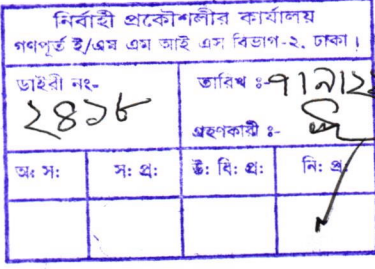 নির্বাহী প্রকৌশলীর কার্যালয়
গণপূর্ত ই/এম এম আই এস বিভাগ-২, ঢাকা।
ডাইরী নং-
২৪১৮
তারিখ ঃ-
গ্রহণকারী ঃ-
অঃ সঃ
সঃ প্রঃ
উঃ বিঃ প্রঃ
নিঃ প্রঃ